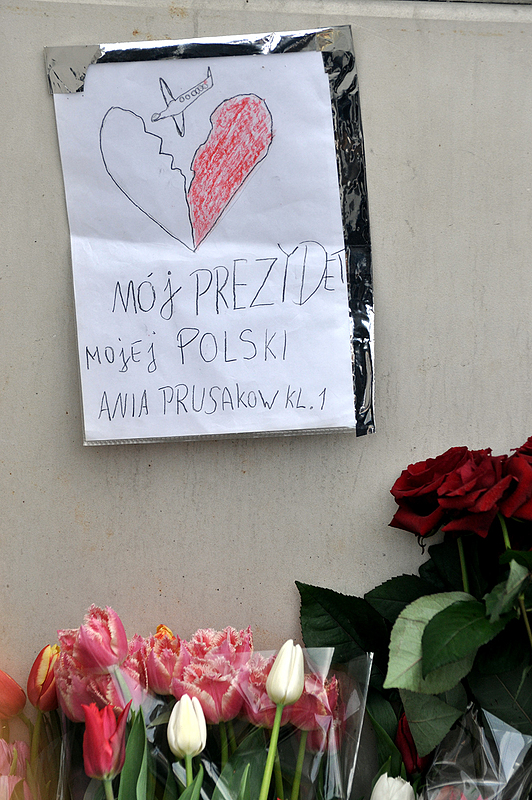 MÓJ PREZYDET
MOJEJ POLSKI
ANIA PRUSAKOW KL. 1